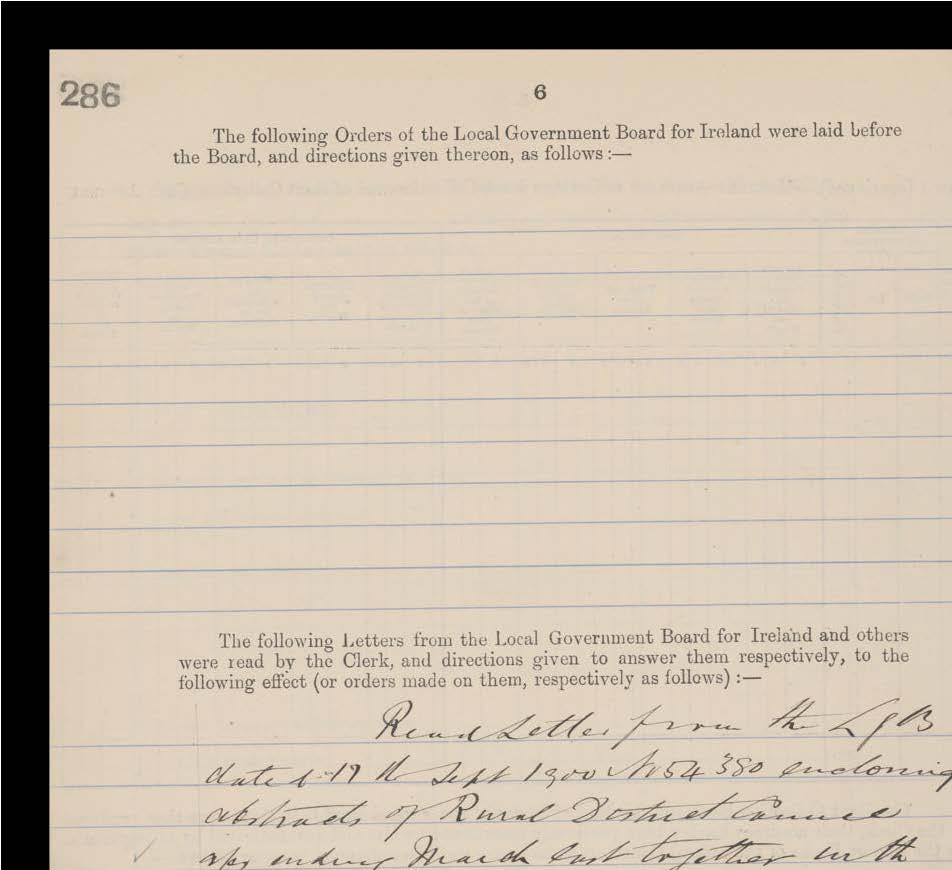 286
6
The following Orders of the Local Government Board for Ireland were laid before
the Board, and directions given thereon, as follows :—
The following Letters from the Local Government Board for Ireland and others
were read by the Clerk, and directions given to answer them respectively, to the
following effect (or orders made on them, respectively as follows) :—
Read Letter from the LGB
dated 19th Sept 1900 No 54380 enclosing
abstracts of Rural District Council
ending March last together with